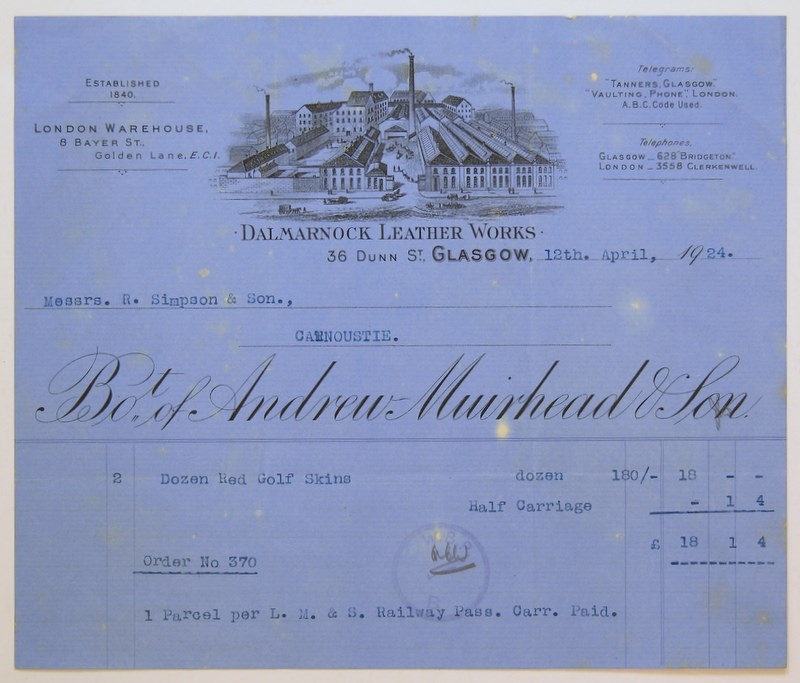 ESTABLISHED
1840.
LONDON WAREHOUSE,
8 BAYER ST.,
Golden Lane, E.C.1.
Telegrams:
"TANNERS, GLASGOW."
"VAULTING, PHONE", LONDON.
A.B.C. Code Used.
Telephones.
GLASGOW _ 628 "BRIDGETON"
LONDON _ 3558 CLERKENWELL
·DALMARNOCK LEATHER WORKS·
36 DUNN ST., GLASGOW, 12th. April, 1924.
Messrs. R. Simpson & Son.,
CARNOUSTIE.
Bot. of Andrew Muirhead & Son.
2 Dozen Red Golf Skins dozen 180/- 18 - -
Half Carriage - 1 4
£ 18 1 4
Order No 370
1 Parcel per L. M. & S. Railway Pass. Carr. Paid.